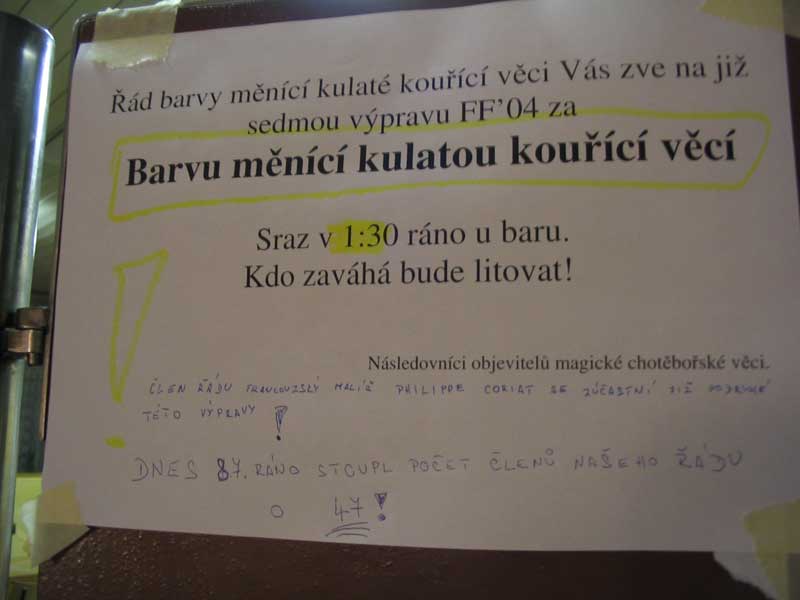 Řád barvy měnící kulaté kouřící věci Vás zve na již
sedmou výpravu FF'04 za
Barvu měnící kulatou kouřící věcí
Sraz v 1:30 ráno u baru.
Kdo zaváhá bude litovat!
Následovníci objevitelů magické chotěbořské věci.
ČLEN ŘÁDU FRANCOUZSKÝ MALÍŘ PHILIPPE CORIAT SE ZÚČASTNÍ JIŽ PODRUHÉ
TÉTO VÝPRAVY !
DNES 7. RÁNO STOUPL POČET ČLENŮ NAŠEHO ŘÁDU
O 47!